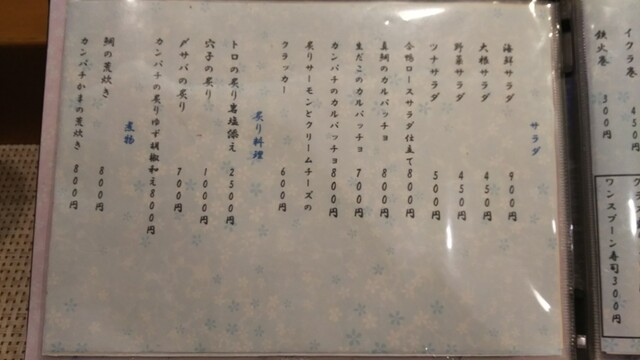 イクラ巻 450円
鉄火巻 300円
ワンスプーン寿司300円
サラダ
海鮮サラダ 900円
大根サラダ 450円
野菜サラダ 450円
ツナサラダ 500円
合鴨ロースサラダ仕立て800円
真鯛のカルパッチョ 800円
生だこのカルパッチョ 700円
カンパチのカルパッチョ 800円
炙りサーモンとクリームチーズの
クラッカー 600円
炙り料理
トロの炙り岩塩添え 2500円
穴子の炙り 1000円
〆サバの炙り 700円
カンパチの炙りゆず胡椒和え800円
煮物
鯛の荒炊き 800円
カンパチかまの荒炊き 800円